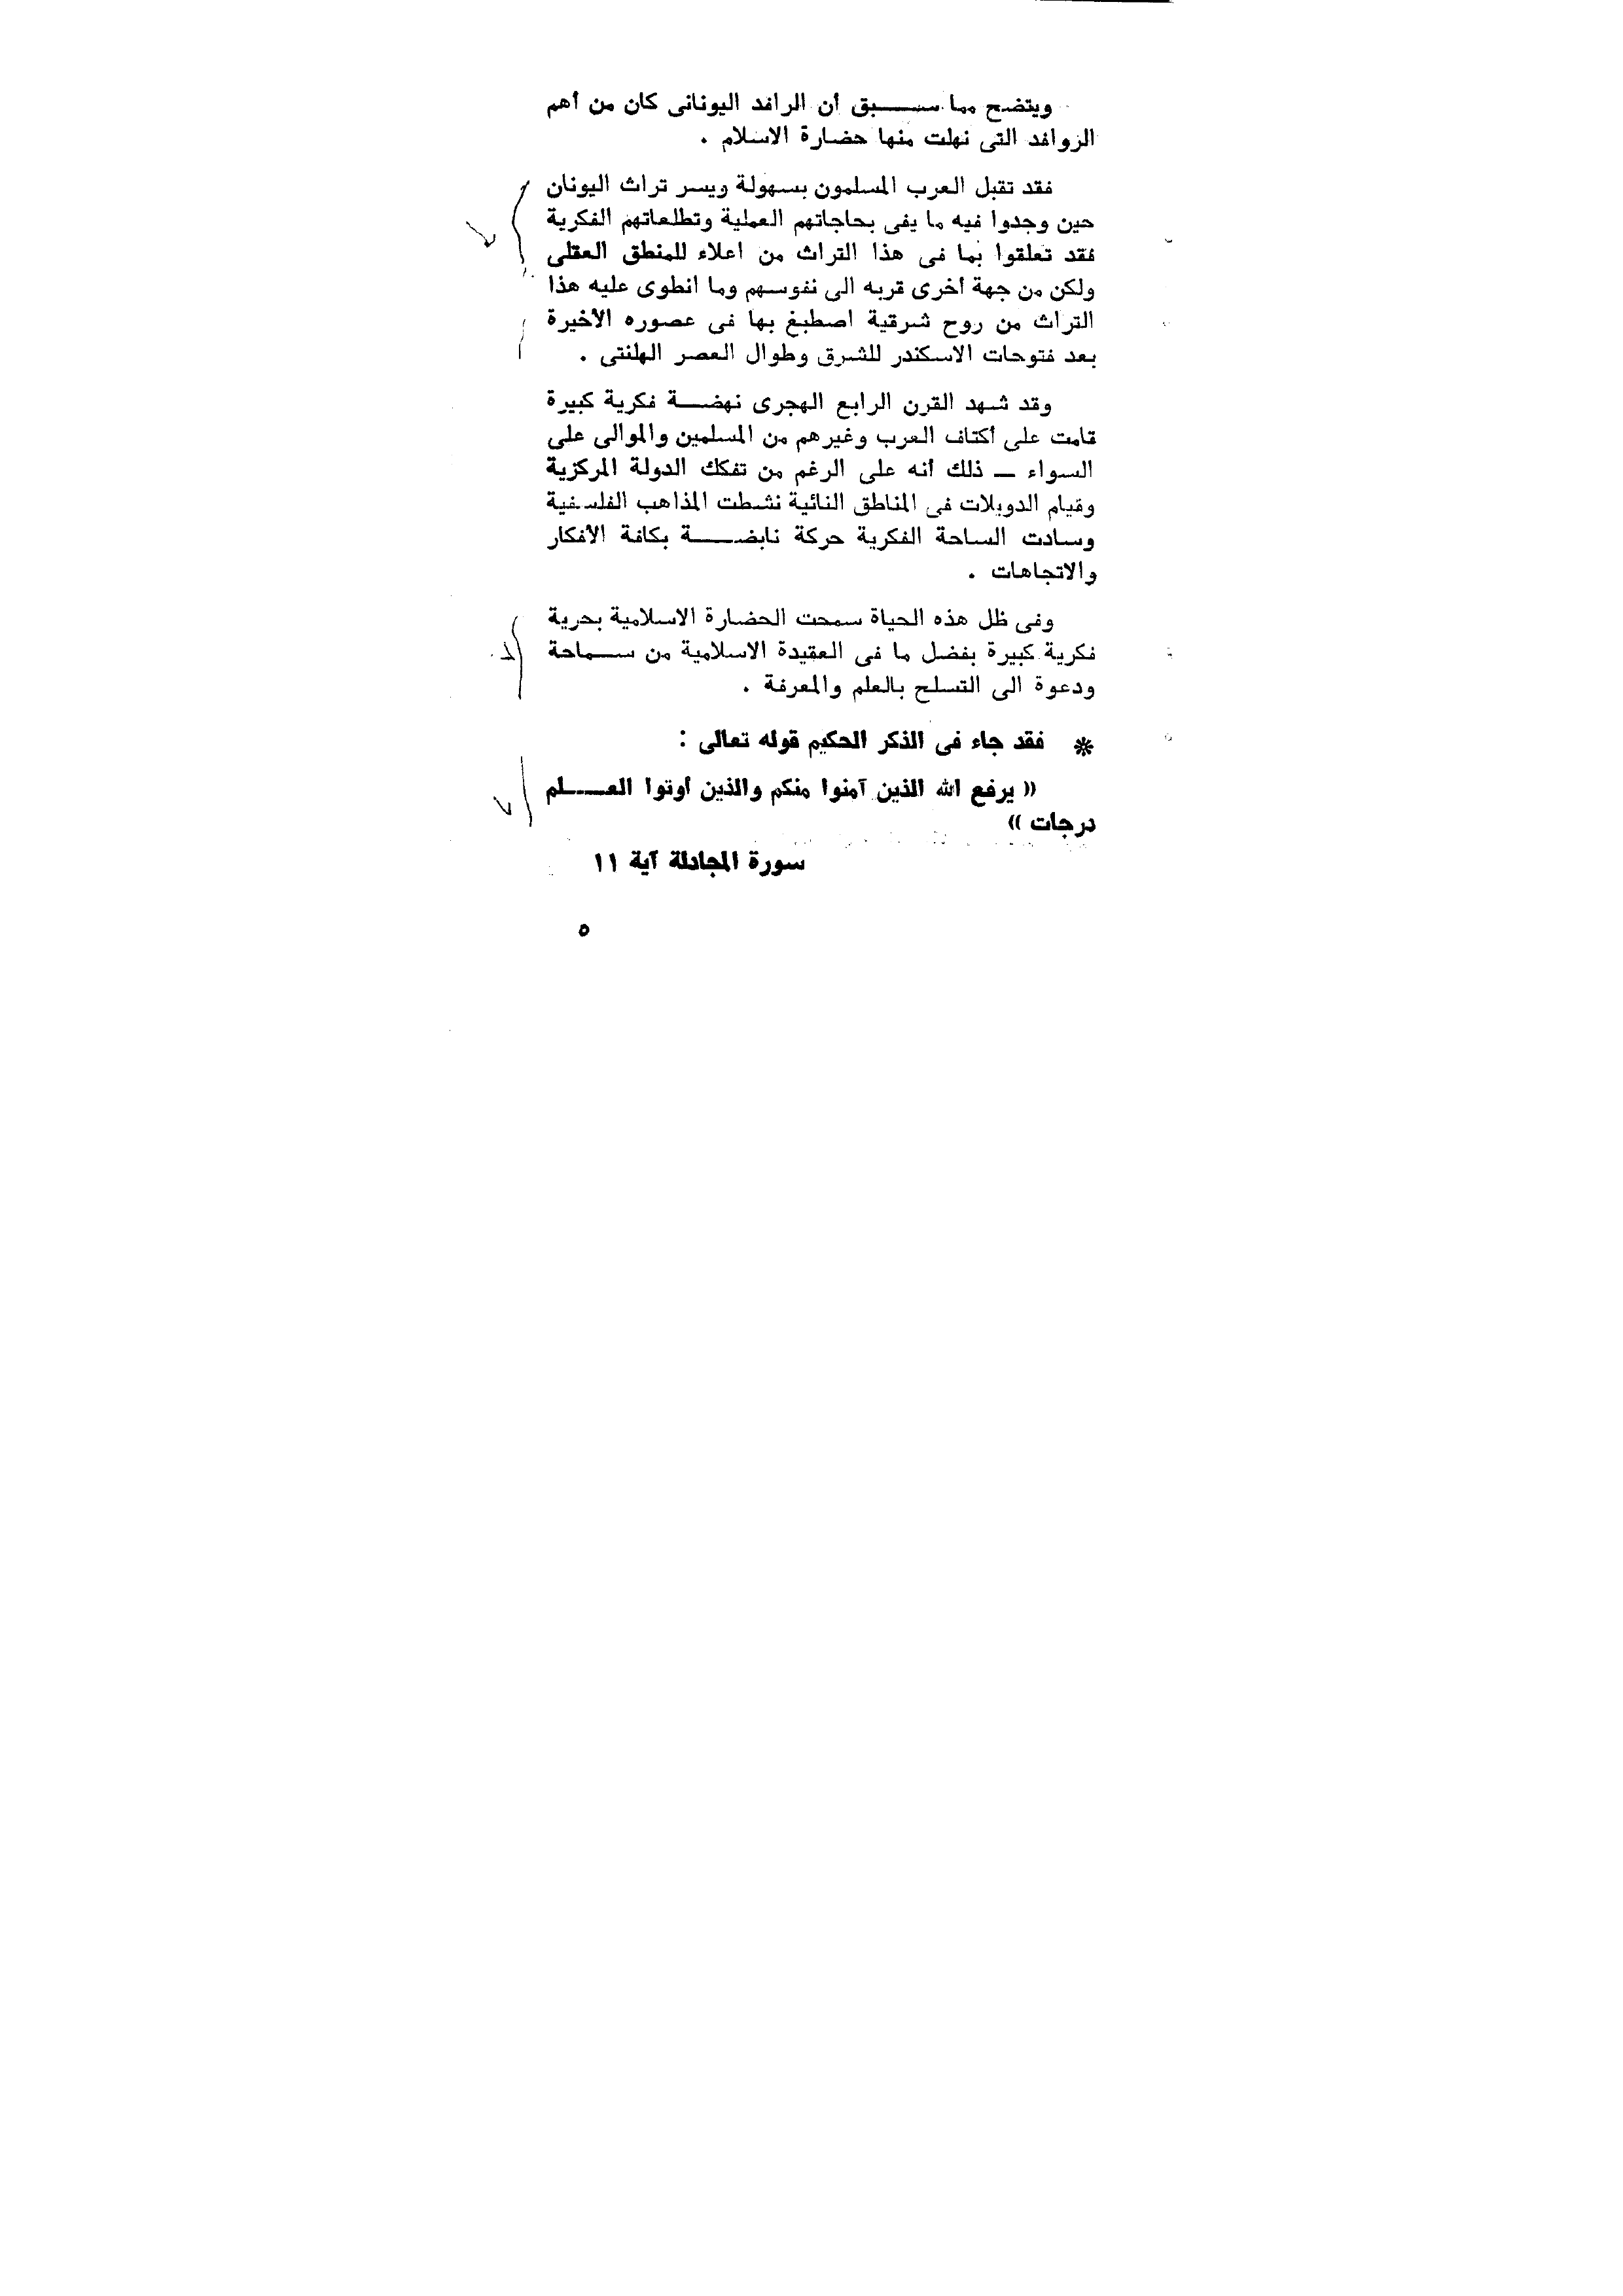 ويتضح مما ســـبق أن الرافد اليونانى كان من أهم
الروافد التى نهلت منها حضارة الاسلام .
فقد تقبل العرب المسلمون بسهولة ويسر تراث اليونان
حين وجدوا فيه ما يفى بحاجاتهم العملية وتطلعاتهم الفكرية
فقد تعلقوا بما فى هذا التراث من اعلاء للمنطق العقلى
ولكن من جهة أخرى قربه الى نفوسهم وما انطوى عليه هذا
التراث من روح شرقية اصطبغ بها فى عصوره الأخيرة
بعد فتوحات الاسكندر للشرق وطوال العصر الهلنتى .
وقد شهد القرن الرابع الهجرى نهضـــة فكرية كبيرة
قامت على أكتاف العرب وغيرهم من المسلمين والموالى على
السواء — ذلك أنه على الرغم من تفكك الدولة المركزية
وقيام الدويلات فى المناطق النائية نشطت المذاهب الفلسفية
وسادت الساحة الفكرية حركة نابضـــة بكافة الأفكار
والاتجاهات .
وفى ظل هذه الحياة سمحت الحضارة الاسلامية بحرية
فكرية كبيرة بفضل ما فى العقيدة الاسلامية من ســماحة
ودعوة الى التسلح بالعلم والمعرفة .
* فقد جاء فى الذكر الحكيم قوله تعالى :
(( يرفع الله الذين آمنوا منكم والذين أوتوا العـــلم
درجات ))
سورة المجادلة آية ١١
٥